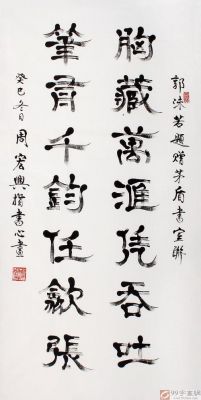 郭沫若题赠茅盾書室聯
胸藏萬滙凭吞吐
筆有千鈞任歙張
癸巳冬日 周宏興指書心畫
99字画网